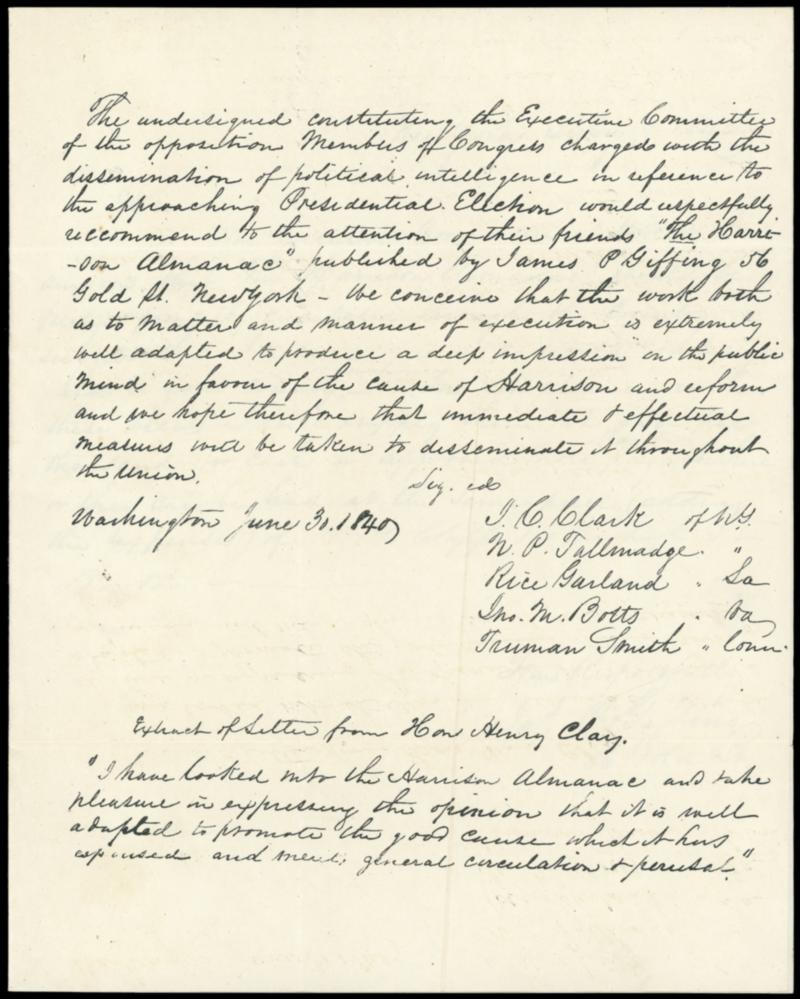 The undersigned constituting the Executive Committee
of the opposition Members of Congress charged with the
dissemination of political intelligence in reference to
the approaching Presidential Election would respectfully
reccommend to the attention of their friends "The Harri-
-son Almanac" published by James P Giffing 56
Gold St. New York - We conceive that the work both
as to matter and manner of execution is extremely
well adapted to produce a deep impression in the public
mind in favour of the cause of Harrison and reform
and we hope therefore that immediate & effectual
measures will be taken to disseminate it throughout
the Union.
Sig. ed
Washington June 30. 1840
J. C. Clark of N.Y.
N. P. Tallmadge. "
Rice Garland " La
Jno. M. Botts " Va
Truman Smith " Conn.
Extract of Letter from Hon Henry Clay.
"I have looked into the Harrison Almanac and take
pleasure in expressing the opinion that it is well
adapted to promote the good cause which it has
espoused and merits general circulation & perusal."